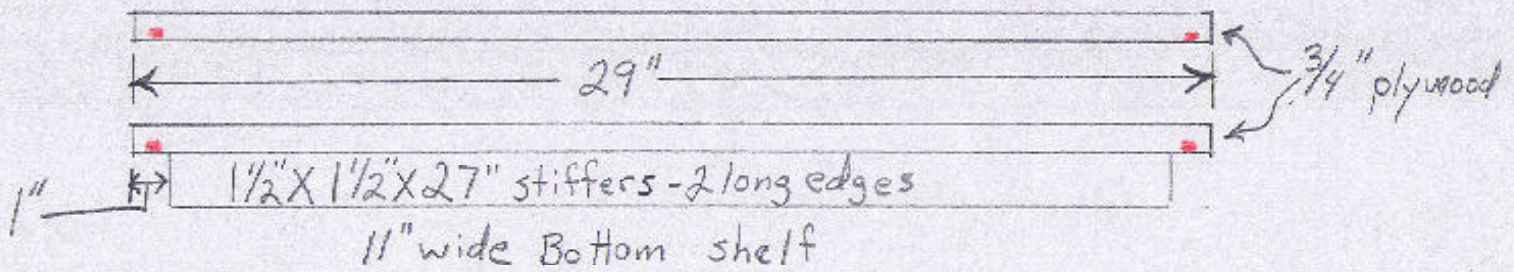 29"
3/4" plywood
1" 1 1/2" X 1 1/2" X 27" stiffers - 2 long edges
11" wide Bottom shelf